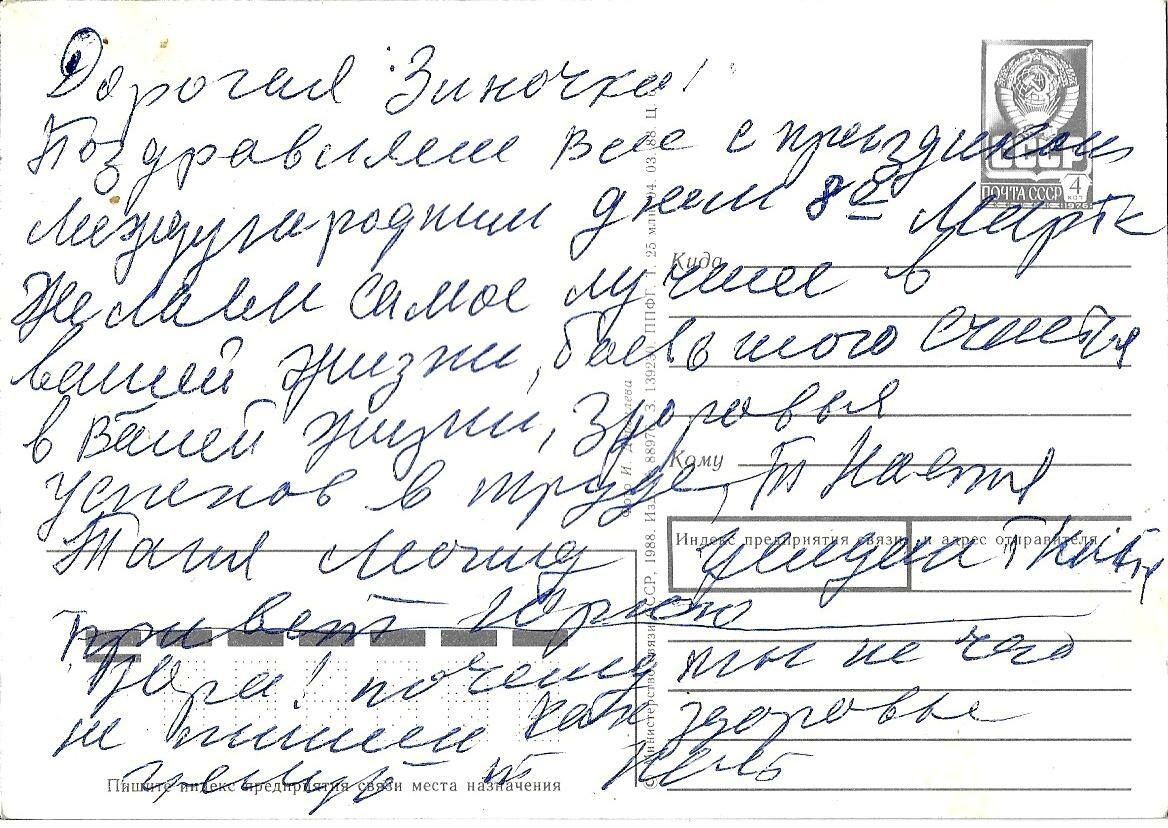 Дорогая Зиночка!
Поздравляем Вас с праздником
международным днем 8е Марта
Желаем самое лучшее в
вашей жизни, большого счастья
в вашей жизни, Здоровья
успехов в труде, Т Настя
Таня Леонид
привет Юрию
Юра! почему ты не чего
не пишеш как здоровье
целую т
СССР
ПОЧТА СССР 4
КОП
1976
Куда
Кому
Индекс предприятия связи и адрес отправителя
Пишите индекс предприятия связи места назначения
© Министерство связи СССР, 1988. З. 139230. ППФГ. 1. 25 млн. 04. 03. 88. Ц.
Фото И.